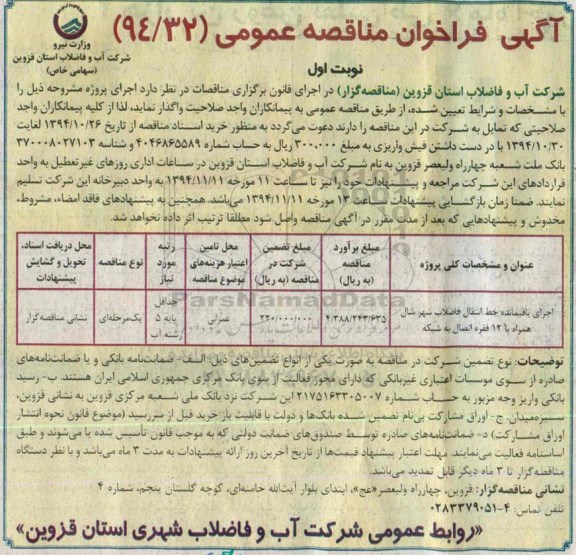 آگهی فراخوان مناقصه عمومی (۹۴/۳۲)
وزارت نیرو
شرکت آب و فاضلاب استان قزوین
(سهامی خاص)
نوبت اول
شرکت آب و فاضلاب استان قزوین (مناقصه‌گزار) در اجرای قانون برگزاری مناقصات در نظر دارد اجرای پروژه مشروحه ذیل را
با مشخصات و شرایط تعیین شده، از طریق مناقصه عمومی به پیمانکاران واجد صلاحیت واگذار نماید، لذا از کلیه پیمانکاران واجد
صلاحیتی که تمایل به شرکت در این مناقصه را دارند دعوت می‌گردد به منظور خرید اسناد مناقصه از تاریخ ۱۳۹۴/۱۰/۲۶ لغایت
۱۳۹۴/۱۰/۳۰ با در دست داشتن فیش واریزی به مبلغ ۳۰۰،۰۰۰ ریال به حساب شماره ۴۰۴۶۸۶۵۵۸۹ و شناسه ۳۷۰۰۰۸۰۲۷۱۰۳
بانک ملت شعبه چهارراه ولیعصر قزوین به نام شرکت آب و فاضلاب استان قزوین در ساعات اداری روزهای غیرتعطیل به واحد
قراردادهای این شرکت مراجعه و پیشنهادات خود را نیز تا ساعت ۱۱ مورخه ۱۳۹۴/۱۱/۱۱ به واحد دبیرخانه این شرکت تسلیم
نمایند. ضمنا زمان بازگشایی پیشنهادات ساعت ۱۳ مورخه ۱۳۹۴/۱۱/۱۱ می‌باشد. همچنین به پیشنهادهای فاقد امضاء، مشروط،
مخدوش و پیشنهادهایی که بعد از مدت مقرر در آگهی مناقصه واصل شود مطلقا ترتیب اثر داده نخواهد شد.
عنوان و مشخصات کلی پروژه
مبلغ برآورد مناقصه (به ریال)
مبلغ تضمین شرکت در مناقصه (به ریال)
محل تامین اعتبار هزینه‌های موضوع مناقصه
رتبه مورد نیاز
نوع مناقصه
محل دریافت اسناد، تحویل و گشایش پیشنهادات
اجرای باقیمانده خط انتقال فاضلاب شهر شال همراه با ۱۲ فقره اتصال به شبکه
۴/۳۸۸/۲۴۳/۶۳۵
۲۲۰/۰۰۰/۰۰۰
عمرانی
حداقل پایه ۵ رشته آب
یک‌مرحله‌ای
نشانی مناقصه‌گزار
ParsNamadData
توضیحات: نوع تضمین شرکت در مناقصه به صورت یکی از انواع تضمین‌های ذیل: الف- ضمانت‌نامه بانکی و یا ضمانت‌نامه‌های
صادره از سوی موسسات اعتباری غیربانکی که دارای مجوز فعالیت از سوی بانک مرکزی جمهوری اسلامی ایران هستند. ب- رسید
بانکی واریز وجه مزبور به حساب شماره ۲۱۷۵۱۶۳۳۰۵۰۰۷ این شرکت نزد بانک ملی شعبه مرکزی قزوین به نشانی قزوین،
سبزه‌میدان. ج- اوراق مشارکت بی‌نام تضمین شده بانک‌ها و دولت با قابلیت باز خرید قبل از سررسید (موضوع قانون نحوه انتشار
اوراق مشارکت) د- ضمانت‌نامه‌های صادره توسط صندوق‌های ضمانت دولتی که به موجب قانون تأسیس شده یا می‌شوند و طبق
اساسنامه فعالیت می‌نمایند. مهلت اعتبار پیشنهاد قیمت‌ها از تاریخ آخرین روز ارائه پیشنهادات به مدت ۳ ماه می‌باشد و با نظر دستگاه
مناقصه‌گزار تا ۳ ماه دیگر قابل تمدید می‌باشد.
نشانی مناقصه‌گزار: قزوین، چهارراه ولیعصر«عج»، ابتدای بلوار آیت‌الله خامنه‌ای، کوچه گلستان پنجم، شماره ۴
تلفن تماس: ۴-۰۲۸۳۳۳۷۹۰۵۱
«روابط عمومی شرکت آب و فاضلاب شهری استان قزوین»